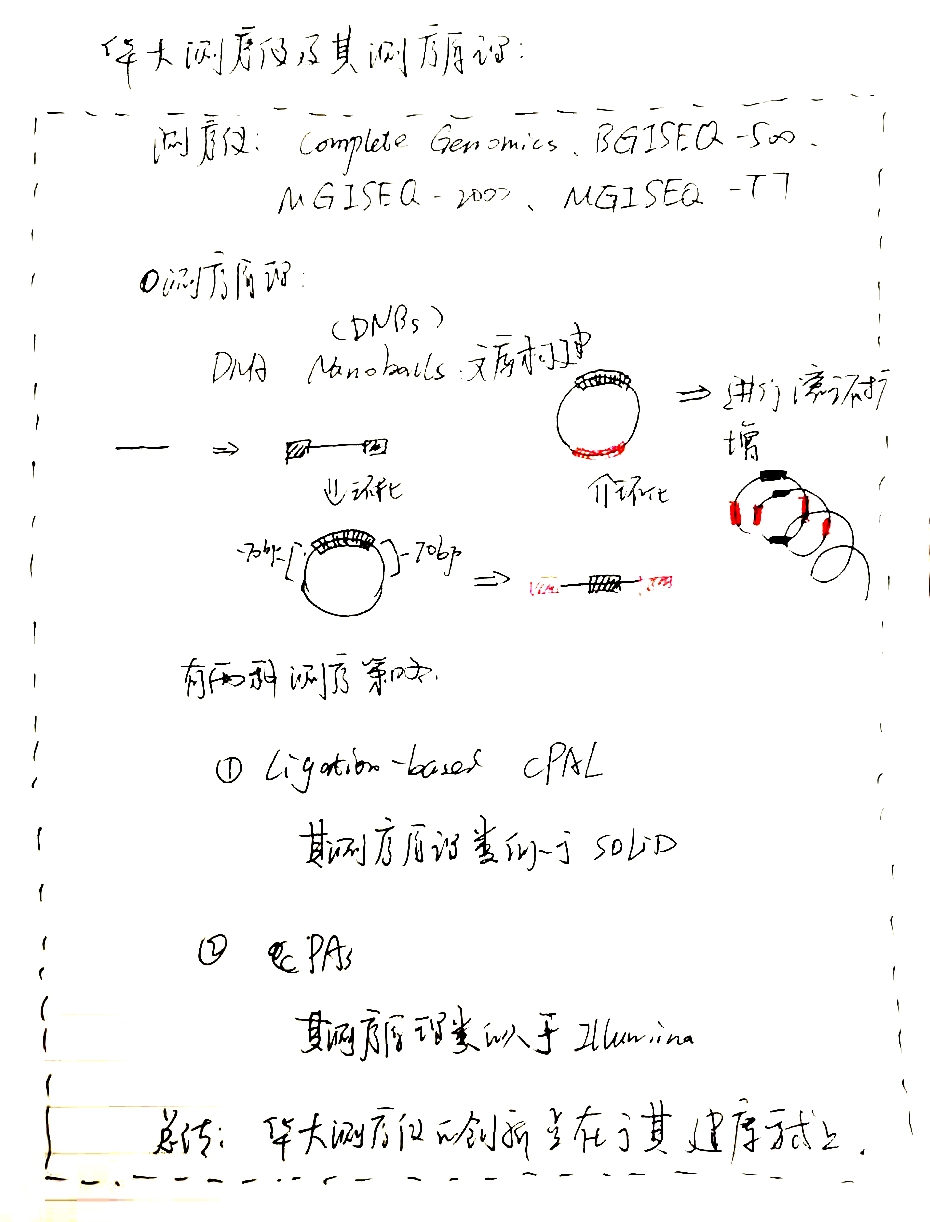 华大测序仪及其测序原理:
测序仪: Complete Genomics、BGISEQ-500、
MGISEQ-2000、MGISEQ-T7
测序原理:
(DNBs)
DNA Nanoballs 文库构建
⇒ 进行滚环扩
增
⇒
⇓环化
⇑环化
-70bp
-70bp
⇒
有两种测序策略.
① Ligation-based cPAL
其测序原理类似于 SOLiD
② cPAS
其测序原理类似于 Illumina
总结: 华大测序仪的创新点在于其建库方式上.